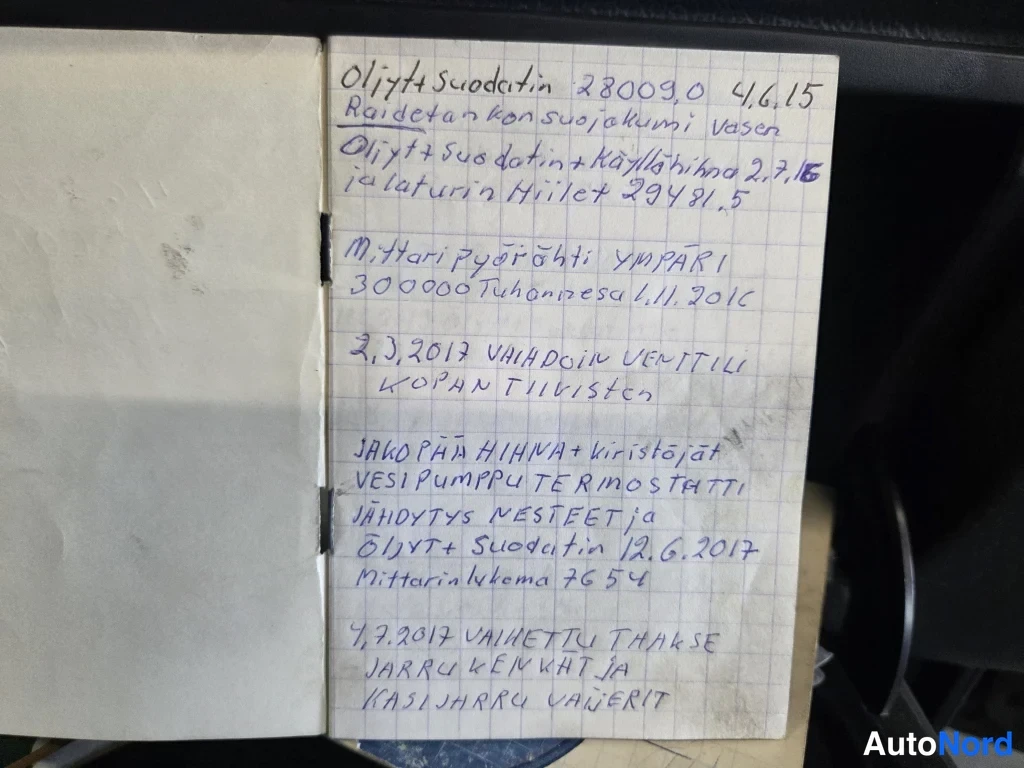 Öljyt+suodatin 28009,0 4.6.15
Raidetankon suojakumi vasen
Öljyt+suodatin+Käyttöhihna 2.7.16
ja laturin Hiilet 29481.5
Mittari pyörähti YMPÄRI
300000 Tuhannesa 1.11.2016
2.3.2017 VAIHDOIN VENTTIILI
KOPAN TIIVISTEN
JAKOPÄÄ HIHNA+kiristäjät
VESIPUMPPU TERMOSTATTI
JÄHDYTYS NESTEET ja
ÖLJYT+ Suodatin 12.6.2017
Mittarinlukema 7654
4.7.2017 VAIHETTU TAAKSE
JARRUKENKÄT JA
KÄSIJARRU VAIJERIT
AutoNord